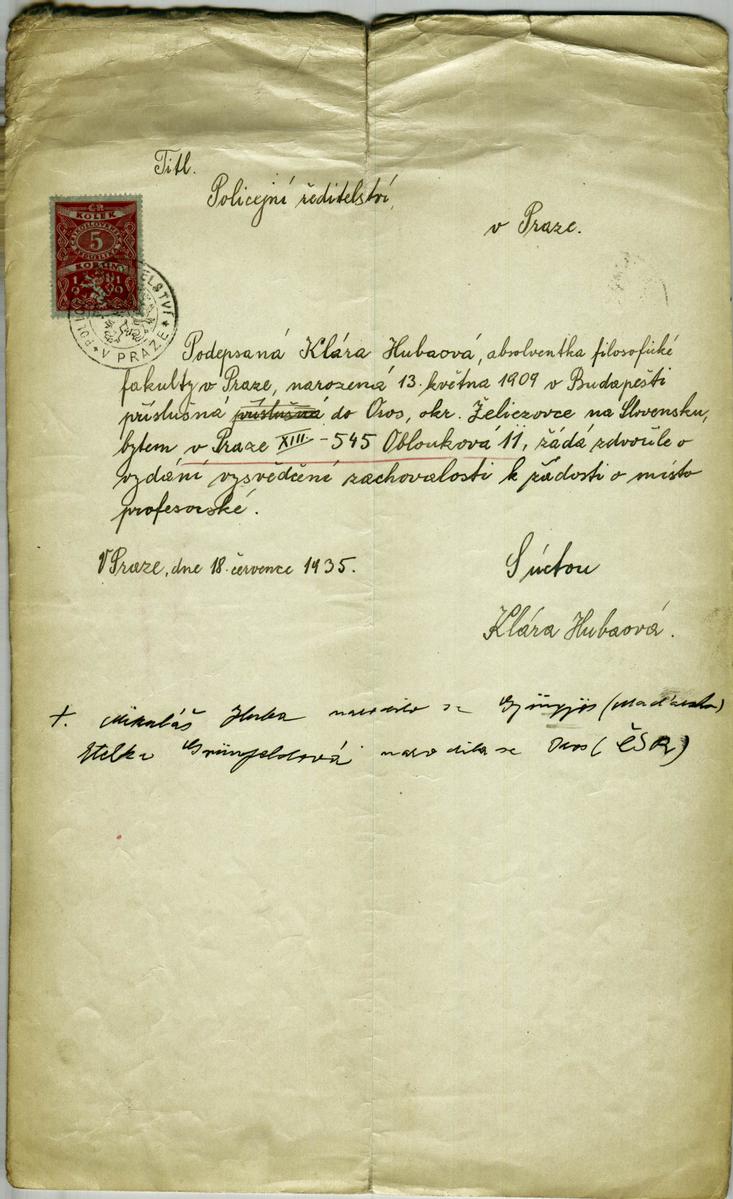 Titl.
Policejní ředitelství,
v Praze.
KOLEK
5
KORUN
1919
V PRAZE
Podepsaná Klára Hubaová, absolventka filosofické
fakulty v Praze, narozená 13. května 1909 v Budapešti
příslušná příslušná do Oros, okr. Želiezovce na Slovensku,
bytem v Praze XIII. - 545 Oblouková 11, žádá zdvořile o
vydání vysvědčení zachovalosti k žádosti o místo
profesorské.
V Praze, dne 18. července 1935.
S úctou
Klára Hubaová.
+. Mikuláš Huba narodil se Gyöngyös (Maďarsko)
Etelka Grünfeldová narodila se Oros (ČSR)